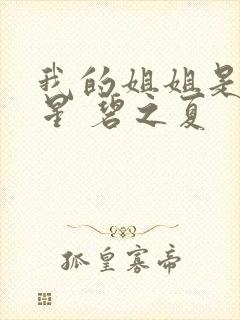 我的姐姐是
星 碧之夏
孤皇寡帝